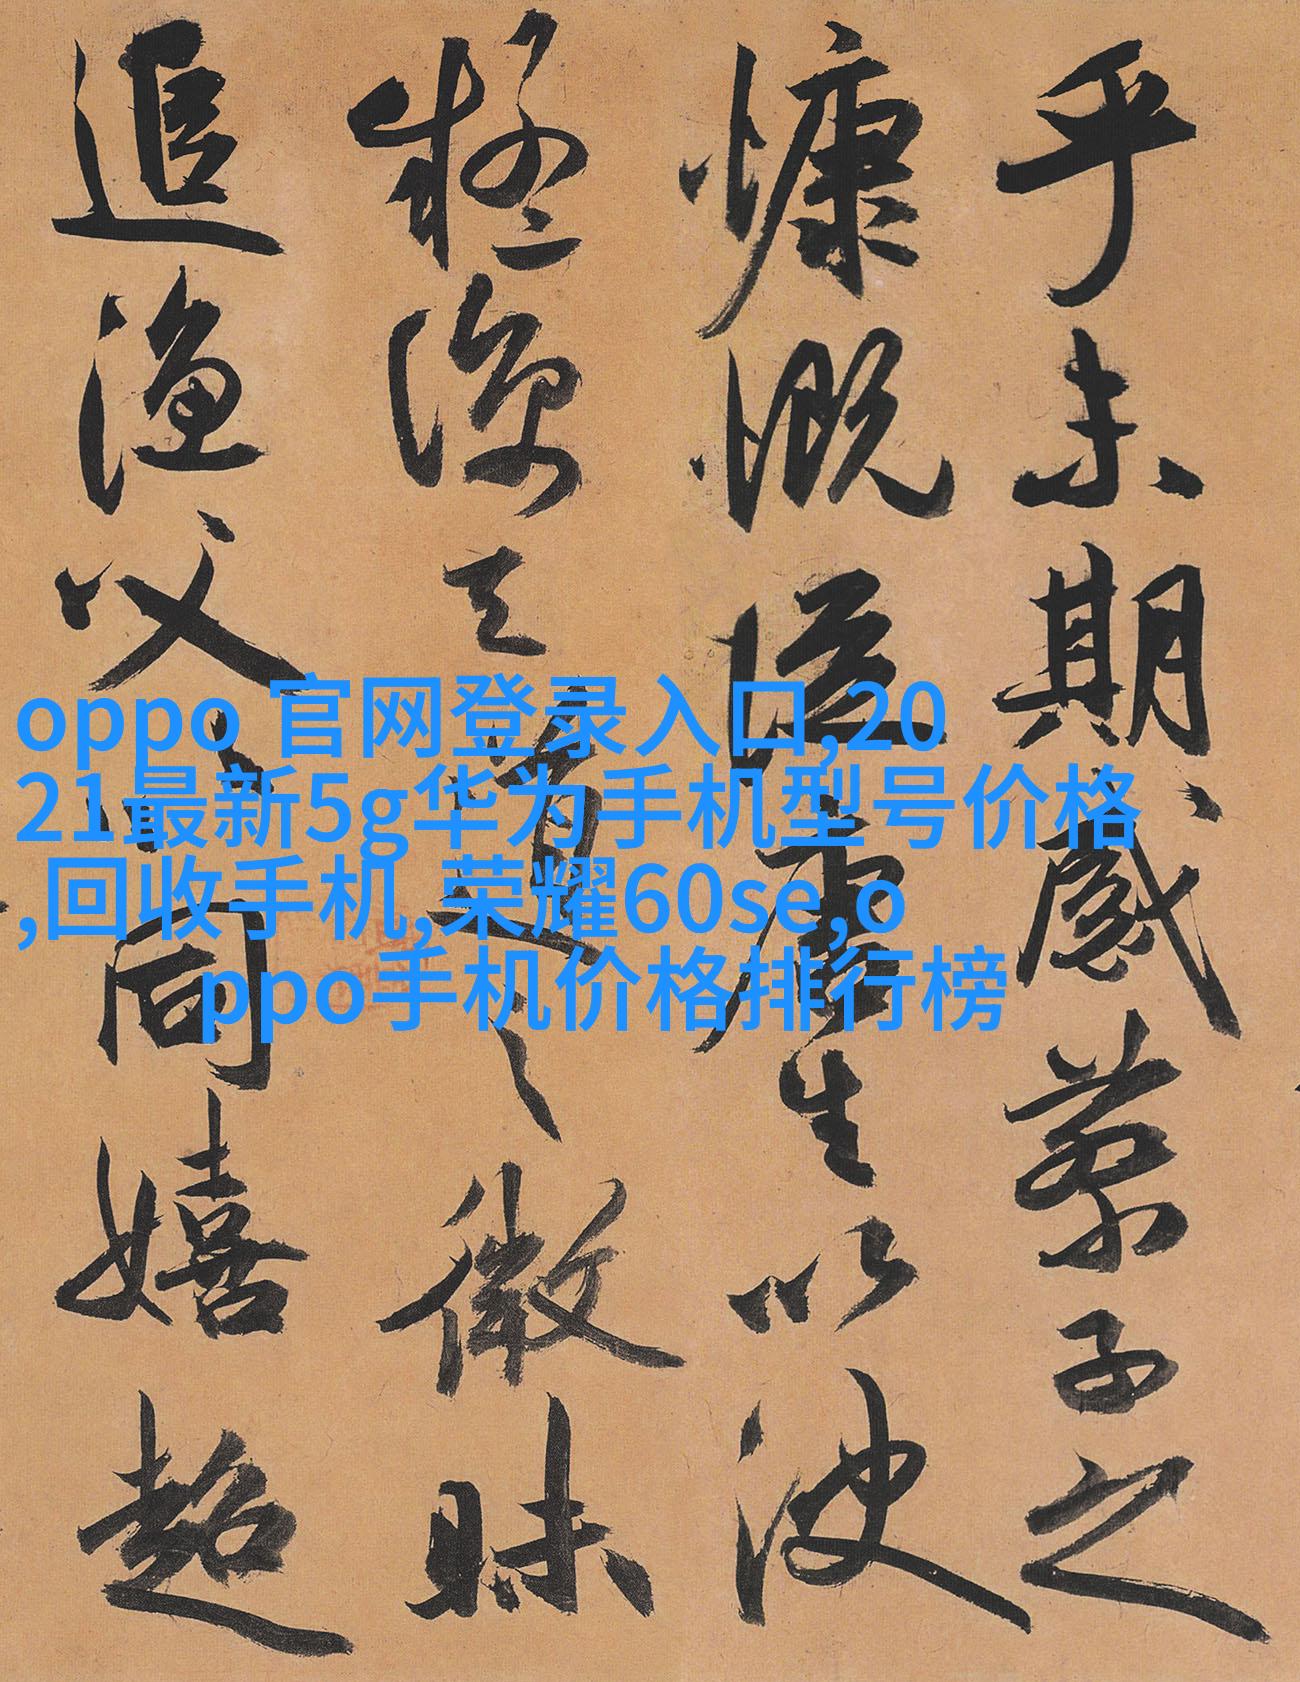 乎未期感蔡子之
慷慨從唐生以決
疑諒天道之微昧
追漁父以同嬉超
oppo 官网登录入口,20
21最新5g华为手机型号价格
,回收手机,荣耀60se,o
ppo手机价格排行榜